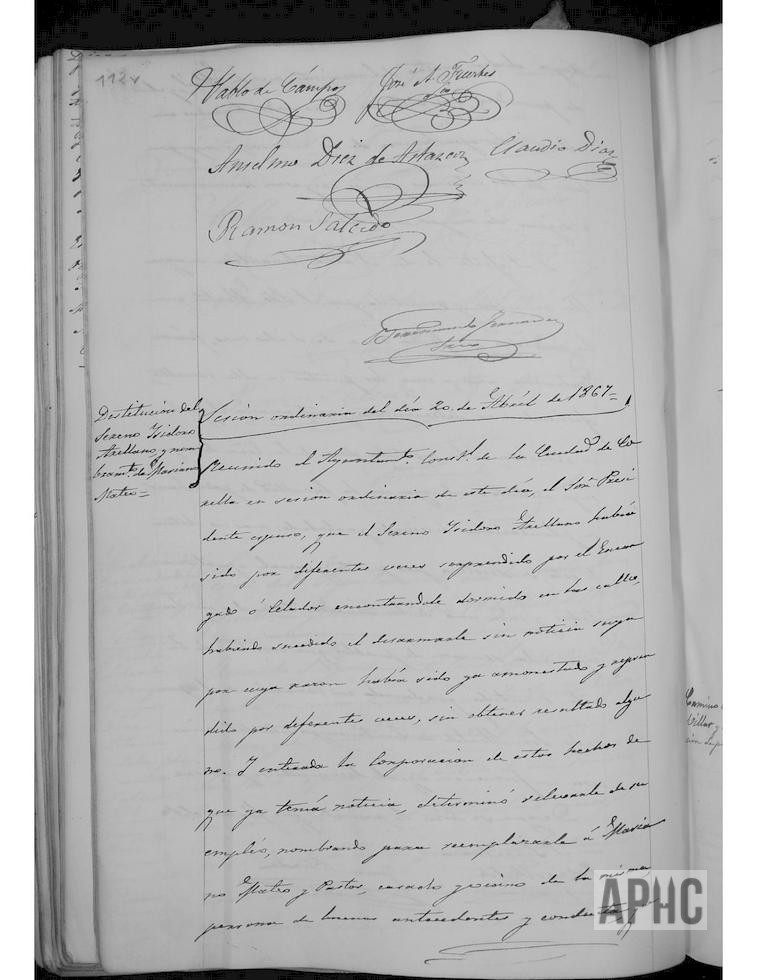 112v
Pablo de Campos José A. Fuertes
Anselmo Diez de Ulzurrun Claudio Diaz
Ramon Salcedo
Destitucion del
Sereno Isidoro
Arellano, y nom
bramto. de Mariano
Mateo=
Sesion ordinaria del día 20 de Abril de 1867=
Reunido el Ayuntamto. Constl. de la Ciudad de Co
rella en sesion ordinaria de este dia, el Sor. Presi
dente espuso, que el Sereno Isidoro Arellano habia
sido por diferentes veces sorprendido por el Encar
gado ó Celador encontrandole dormido en las calles,
habiendo sucedido el desarmarle sin noticia suya
por cuya razon habia sido ya amonestado y repren
dido por diferentes veces, sin obtener resultado algu
no. Y enterada la Corporacion de estos hechos de
que ya tenía noticia, determinó relevarle de su
empléo, nombrando para reemplazarle á Maria
no Mateo y Pastor, casado vecino de la misma,
persona de buenos antecedentes y conducta, y
Camino
Villar y
APHC